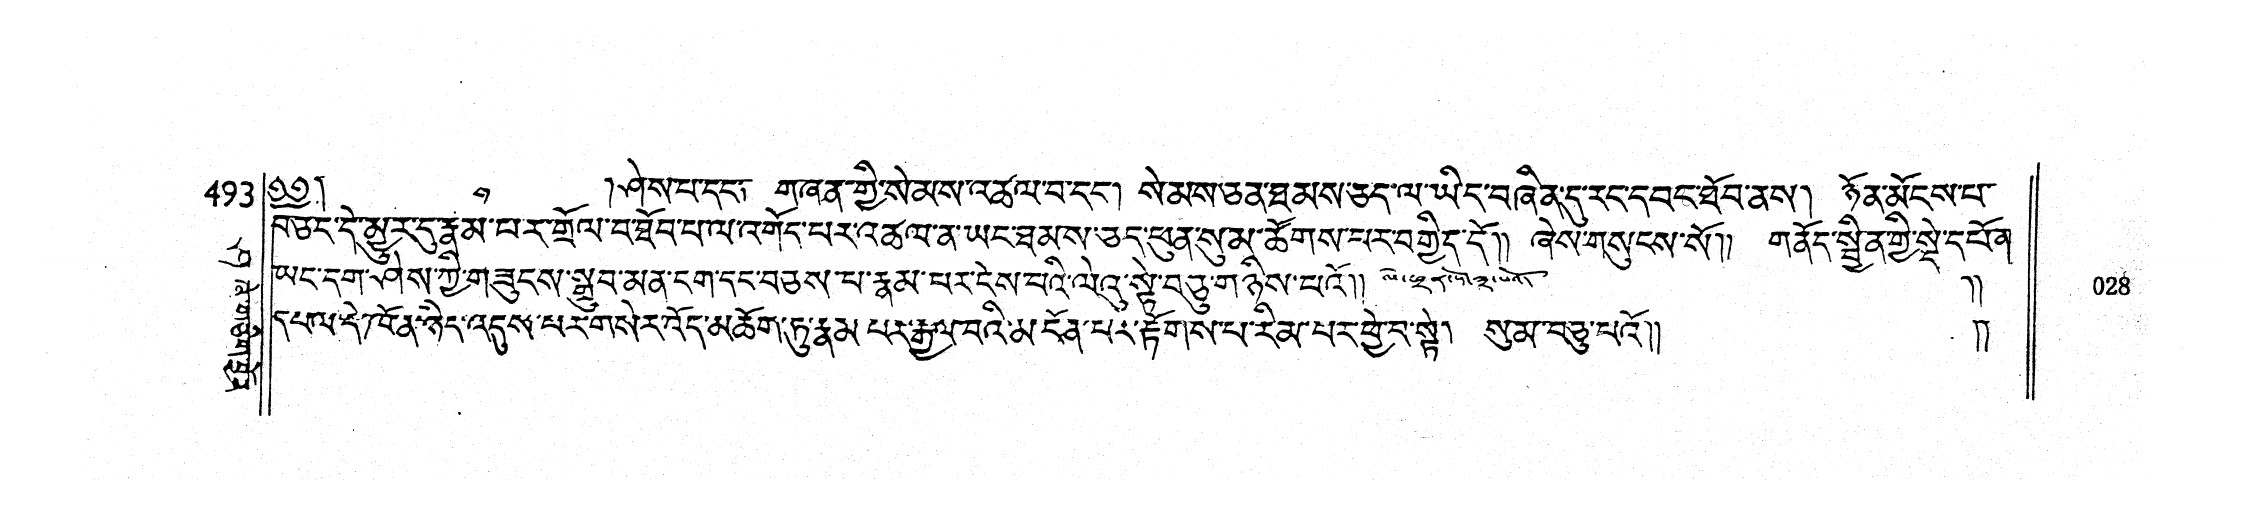 493 ༄༅། ། ཞེས་པ་དང་། གཞན་གྱི་སེམས་འཚལ་བ་དང་། སེམས་ཅན་ཐམས་ཅད་ལ་ཡིད་བཞིན་དུ་རང་དབང་ཐོབ་ནས། ཉོན་མོངས་པ་
བཅང་དེ་མྱུར་དུ་རྣམ་པར་གྲོལ་བ་ཐོབ་པ་ལ་འགོད་པར་འཚལ་ན་ཡང་ཐམས་ཅད་ཕུན་སུམ་ཚོགས་པར་བགྱིད་དོ།། ཞེས་གསུངས་སོ།། གནོད་སྦྱིན་གྱི་སྡེ་དཔོན་
ཡང་དག་ཤེས་ཀྱི་གཟུངས་སྒྲུབ་མན་ངག་དང་བཅས་པ་རྣམ་པར་ངེས་པའི་ལེའུ་སྟེ་བཅུ་གཉིས་པའོ།། །།
དཔལ་དེ་ཁོན་ཉིད་འདུས་པར་གསེར་འོད་མཆོག་ཏུ་རྣམ་པར་རྒྱལ་བའི་མངོན་པར་རྟོགས་པ་རིམ་པར་ཕྱེ་བ་སྟེ། སུམ་བཅུ་པའོ།། །།
028